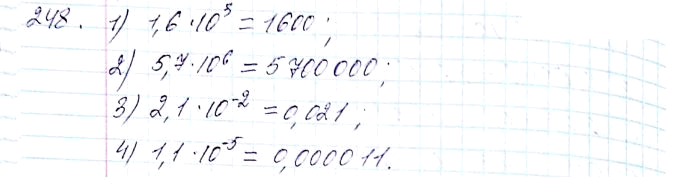 248. 1) 1,6 · 10³ = 1600;
2) 5,7 · 10⁶ = 5 700 000;
3) 2,1 · 10⁻² = 0,021;
4) 1,1 · 10⁻⁵ = 0,000011.